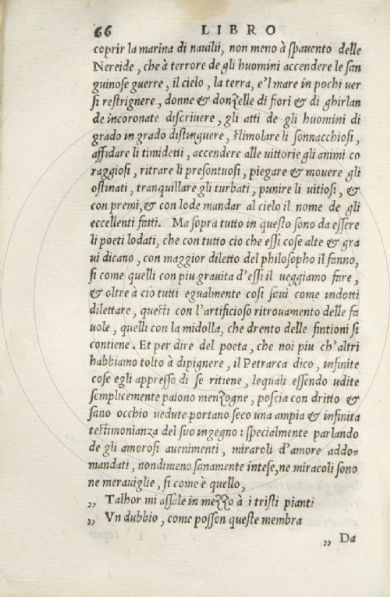 66 LIBRO
coprir la marina di nauilii, non meno à spauento delle
Nereide, che à terrore de gli huomini accendere le san
guinose guerre, il cielo, la terra, e'l mare in pochi uer
si restrignere, donne & donzelle di fiori & di ghirlan
de incoronate discriuere, gli atti de gli huomini di
grado in grado distinguere, stimolare li sonnacchiosi,
affidare li timidetti, accendere alle uittorie gli animi co
raggiosi, ritrare li presontuosi, piegare & mouere gli
ostinati, tranquillare gli turbati, punire li uitiosi, &
con premi, & con lode mandar al cielo il nome de gli
eccellenti fatti. Ma sopra tutto in questo sono da essere
li poeti lodati, che con tutto cio che essi cose alte & gra
ui dicano, con maggior diletto del philosopho il fanno,
si come quelli con piu grauita d'essi il ueggiamo fare,
& oltre à cio tutti egualmente cosi saui come indotti
dilettare, questi con l'artificioso ritrouamento delle fa
uole, quelli con la midolla, che drento delle fintioni si
contiene. Et per dire del poeta, che noi piu ch'altri
habbiamo tolto à dipignere, il Petrarca dico, infinite
cose egli appresso di se ritiene, lequali essendo udite
semplicemente paiono menzogne, poscia con dritto &
sano occhio uedute portano seco una ampia & infinita
testimonianza del suo ingegno: specialmente parlando
de gli amorosi auenimenti, miraroli d'amore addo-
mandati, nondimeno sanamente intese, ne miracoli sono
ne merauiglie, si come è quello,
„ Talhor mi assale in mezzo à i tristi pianti
„ Vn dubbio, come posson queste membra
„ Da